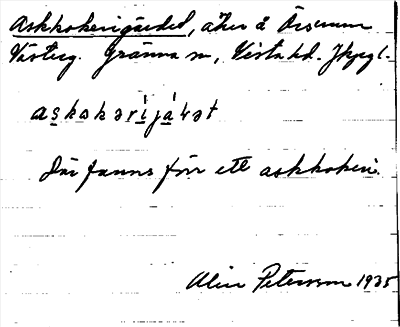 Askkokerigärdet, åker å Örserum
Västerg. Gränna sn, Vista hd. Jkpgl.
askokərijáḷət
Där fanns förr ett askkokeri.
Alin Petersson 1935